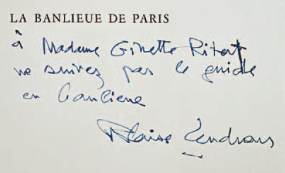 LA BANLIEUE DE PARIS
à Madame Ginette Ritat
ne suivez pas le guide
en banlieue
Blaise Cendrars